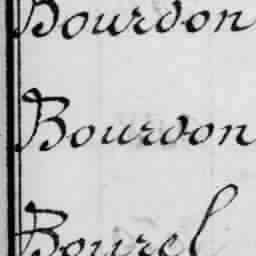 Bourdon
Bourdon
Bourel